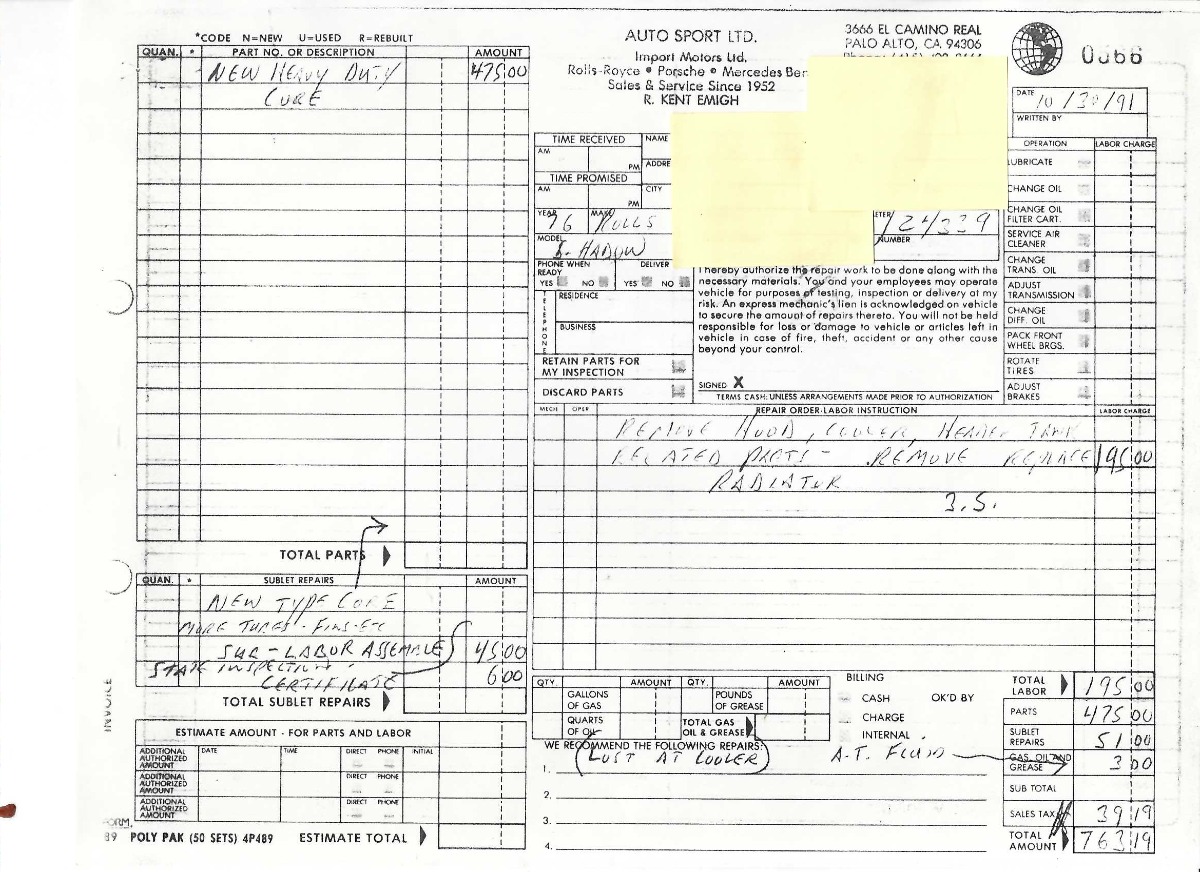 *CODE N=NEW U=USED R=REBUILT
QUAN. * PART NO. OR DESCRIPTION AMOUNT
NEW HEAVY DUTY 475 00
CORE
TOTAL PARTS
QUAN. * SUBLET REPAIRS AMOUNT
NEW TYPE CORE
MORE TUBES - FINS - ETC
SUB - LABOR ASSEMBLE 45 00
STATE INSPECTION 6 00
CERTIFICATE
TOTAL SUBLET REPAIRS
ESTIMATE AMOUNT - FOR PARTS AND LABOR
ADDITIONAL AUTHORIZED AMOUNT DATE TIME DIRECT PHONE INITIAL
ADDITIONAL AUTHORIZED AMOUNT DIRECT PHONE
ADDITIONAL AUTHORIZED AMOUNT DIRECT PHONE
INVOICE
FORM.
89 POLY PAK (50 SETS) 4P489 ESTIMATE TOTAL
AUTO SPORT LTD.
Import Motors Ltd.
Rolls-Royce • Porsche • Mercedes Ben
Sales & Service Since 1952
R. KENT EMIGH
3666 EL CAMINO REAL
PALO ALTO, CA. 94306
0366
DATE 10/30/91
WRITTEN BY
TIME RECEIVED NAME
AM PM ADDRE
TIME PROMISED
AM PM CITY
YEAR 76 MAKE ROLLS
ETER 124339
MODEL S. HADOW
NUMBER
PHONE WHEN READY DELIVER
YES NO YES NO
TELEPHONE
RESIDENCE
BUSINESS
RETAIN PARTS FOR MY INSPECTION
DISCARD PARTS
I hereby authorize the repair work to be done along with the
necessary materials. You and your employees may operate
vehicle for purposes of testing, inspection or delivery at my
risk. An express mechanic's lien is acknowledged on vehicle
to secure the amount of repairs thereto. You will not be held
responsible for loss or damage to vehicle or articles left in
vehicle in case of fire, theft, accident or any other cause
beyond your control.
SIGNED X
TERMS CASH: UNLESS ARRANGEMENTS MADE PRIOR TO AUTHORIZATION
OPERATION LABOR CHARGE
LUBRICATE
CHANGE OIL
CHANGE OIL FILTER CART.
SERVICE AIR CLEANER
CHANGE TRANS. OIL
ADJUST TRANSMISSION
CHANGE DIFF. OIL
PACK FRONT WHEEL BRGS.
ROTATE TIRES
ADJUST BRAKES
MECH OPER REPAIR ORDER-LABOR INSTRUCTION LABOR CHARGE
REMOVE HOOD, COOLER, HEADER TANK
RELATED PARTS - REMOVE REPLACE 195 00
RADIATOR
3.5.
QTY. AMOUNT QTY. AMOUNT
GALLONS OF GAS POUNDS OF GREASE
QUARTS OF OIL TOTAL GAS OIL & GREASE
BILLING
CASH OK'D BY
CHARGE
INTERNAL
WE RECOMMEND THE FOLLOWING REPAIRS:
1. (LOST AT COOLER) A.T. FLUID
2.
3.
4.
TOTAL LABOR 195 00
PARTS 475 00
SUBLET REPAIRS 51 00
GAS, OIL AND GREASE 3 00
SUB TOTAL
SALES TAX 39 19
TOTAL AMOUNT 763 19